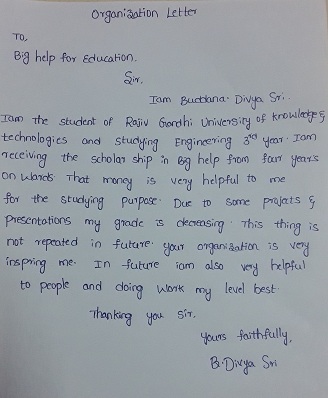 Organization Letter
To,
Big help for Education.
Sir,
Iam Buddana. Divya Sri.
Iam the student of Rajiv Gandhi University of knowledge &
technologies and studying Engineering 3rd year. Iam
receiving the scholar ship in Big help from four years
on wards. That money is very helpful to me
for the studying purpose. Due to some projats &
presentations my grade is decreasing. This thing is
not repeated in future. your organization is very
inspring me. In future iam also very helpful
to people and doing work my level best.
Thanking you sir.
yours faithfully,
B. Divya Sri